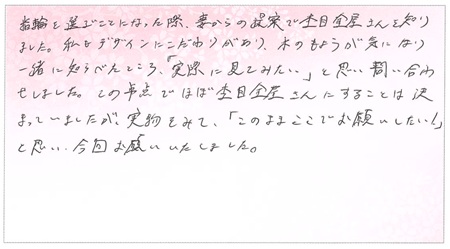 指輪を選ぶことになった際、妻からの提案で杢目金屋さんを知り
ました。私もデザインにこだわりがあり、木のもようが気になり
一緒に知らべたところ、「実際に見てみたい。」と思い問い合わ
せしました。この時点でほぼ杢目金屋さんにすることは決
まっていましたが、実物をみて、「このままここでお願いしたい!」
と思い、今回お願いいたしました。